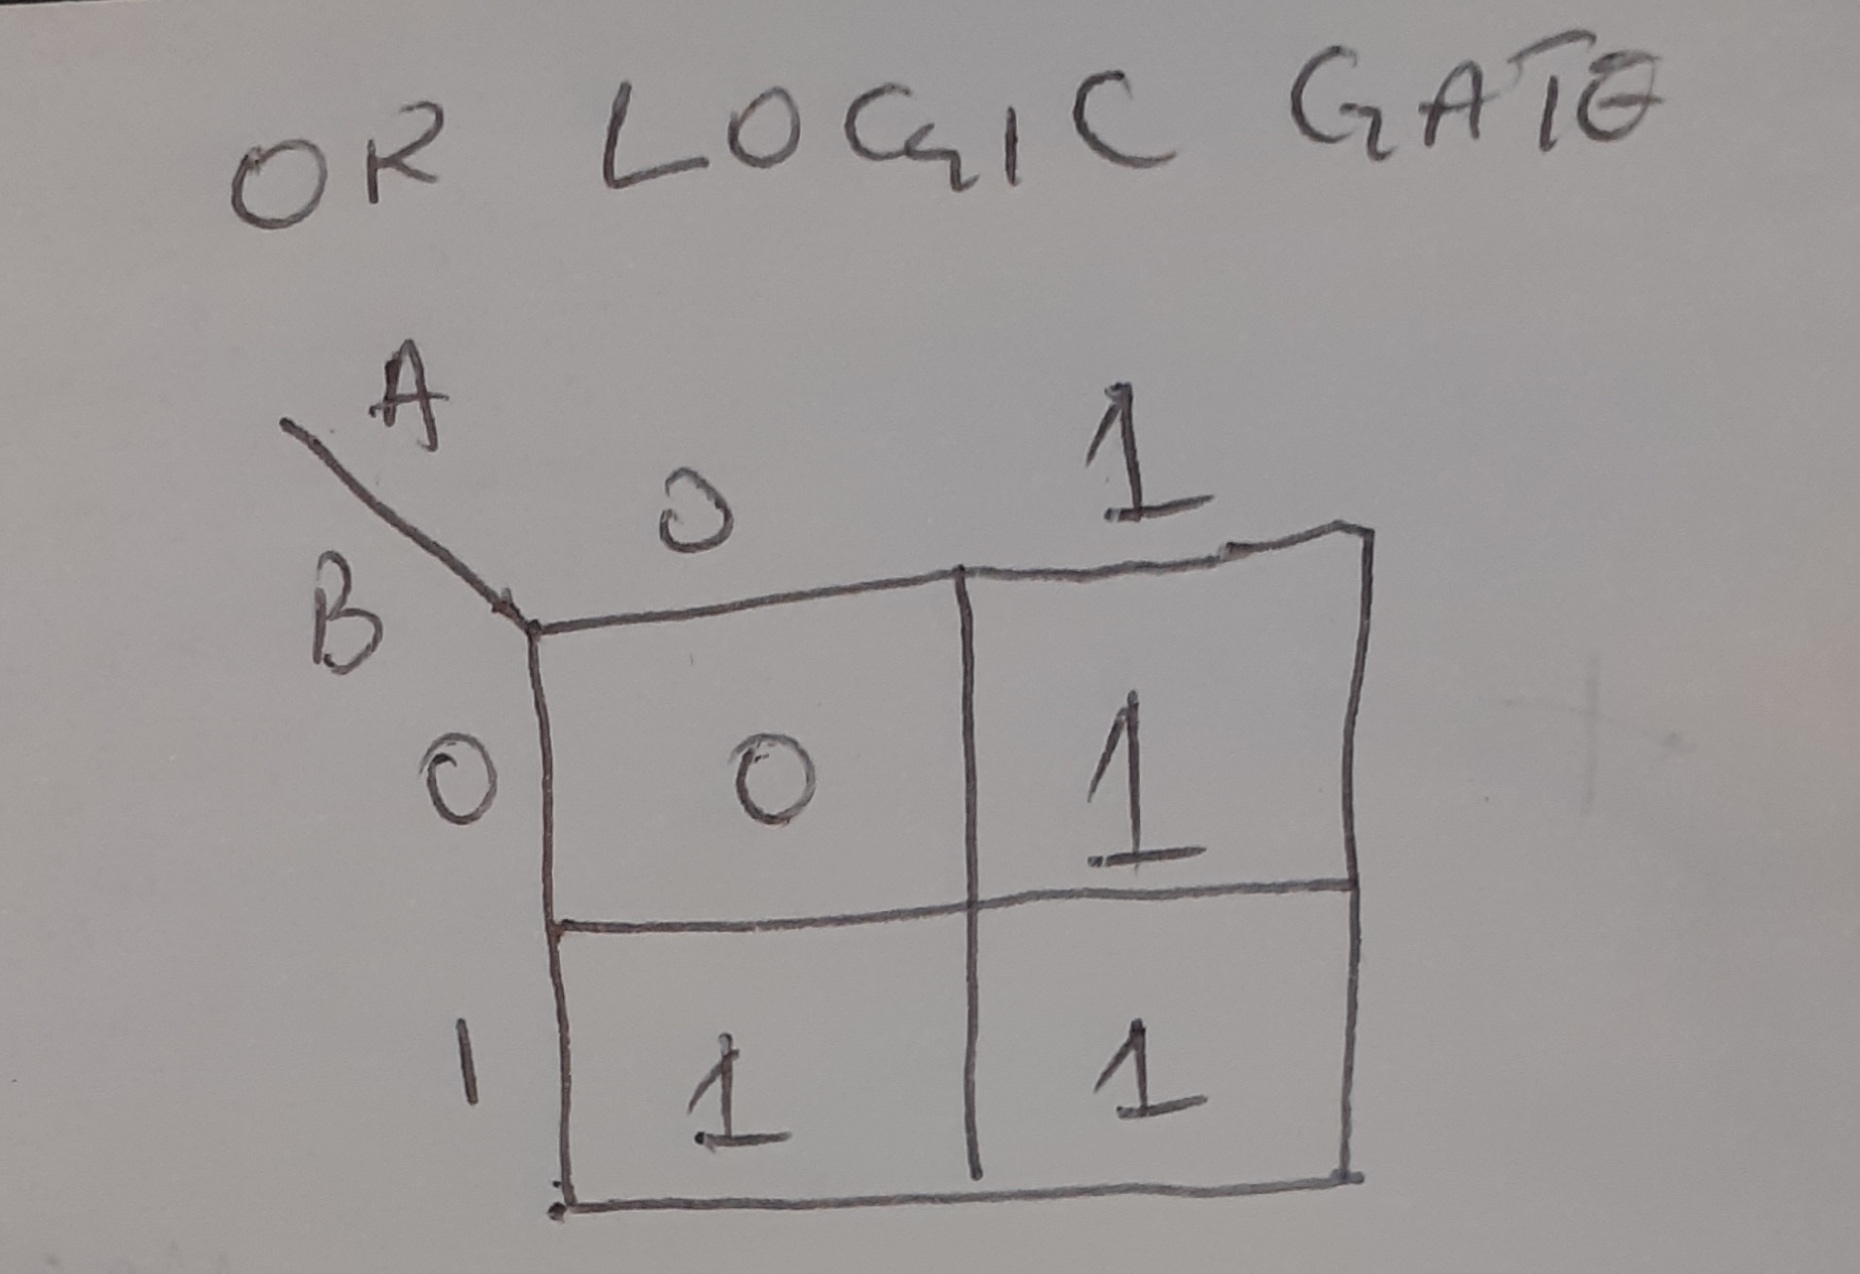 OR LOGIC GATE
A
0 1
B
0 0 1
1 1 1